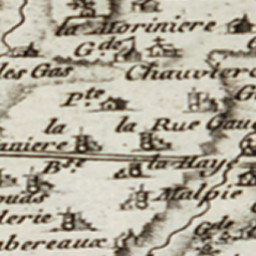 la Moriniere
G.de
les Gas Chauviere
P.te
la la Rue Gau
aniere
B.se la Haye
ouds Malpie
lerie G.de
mbereaux